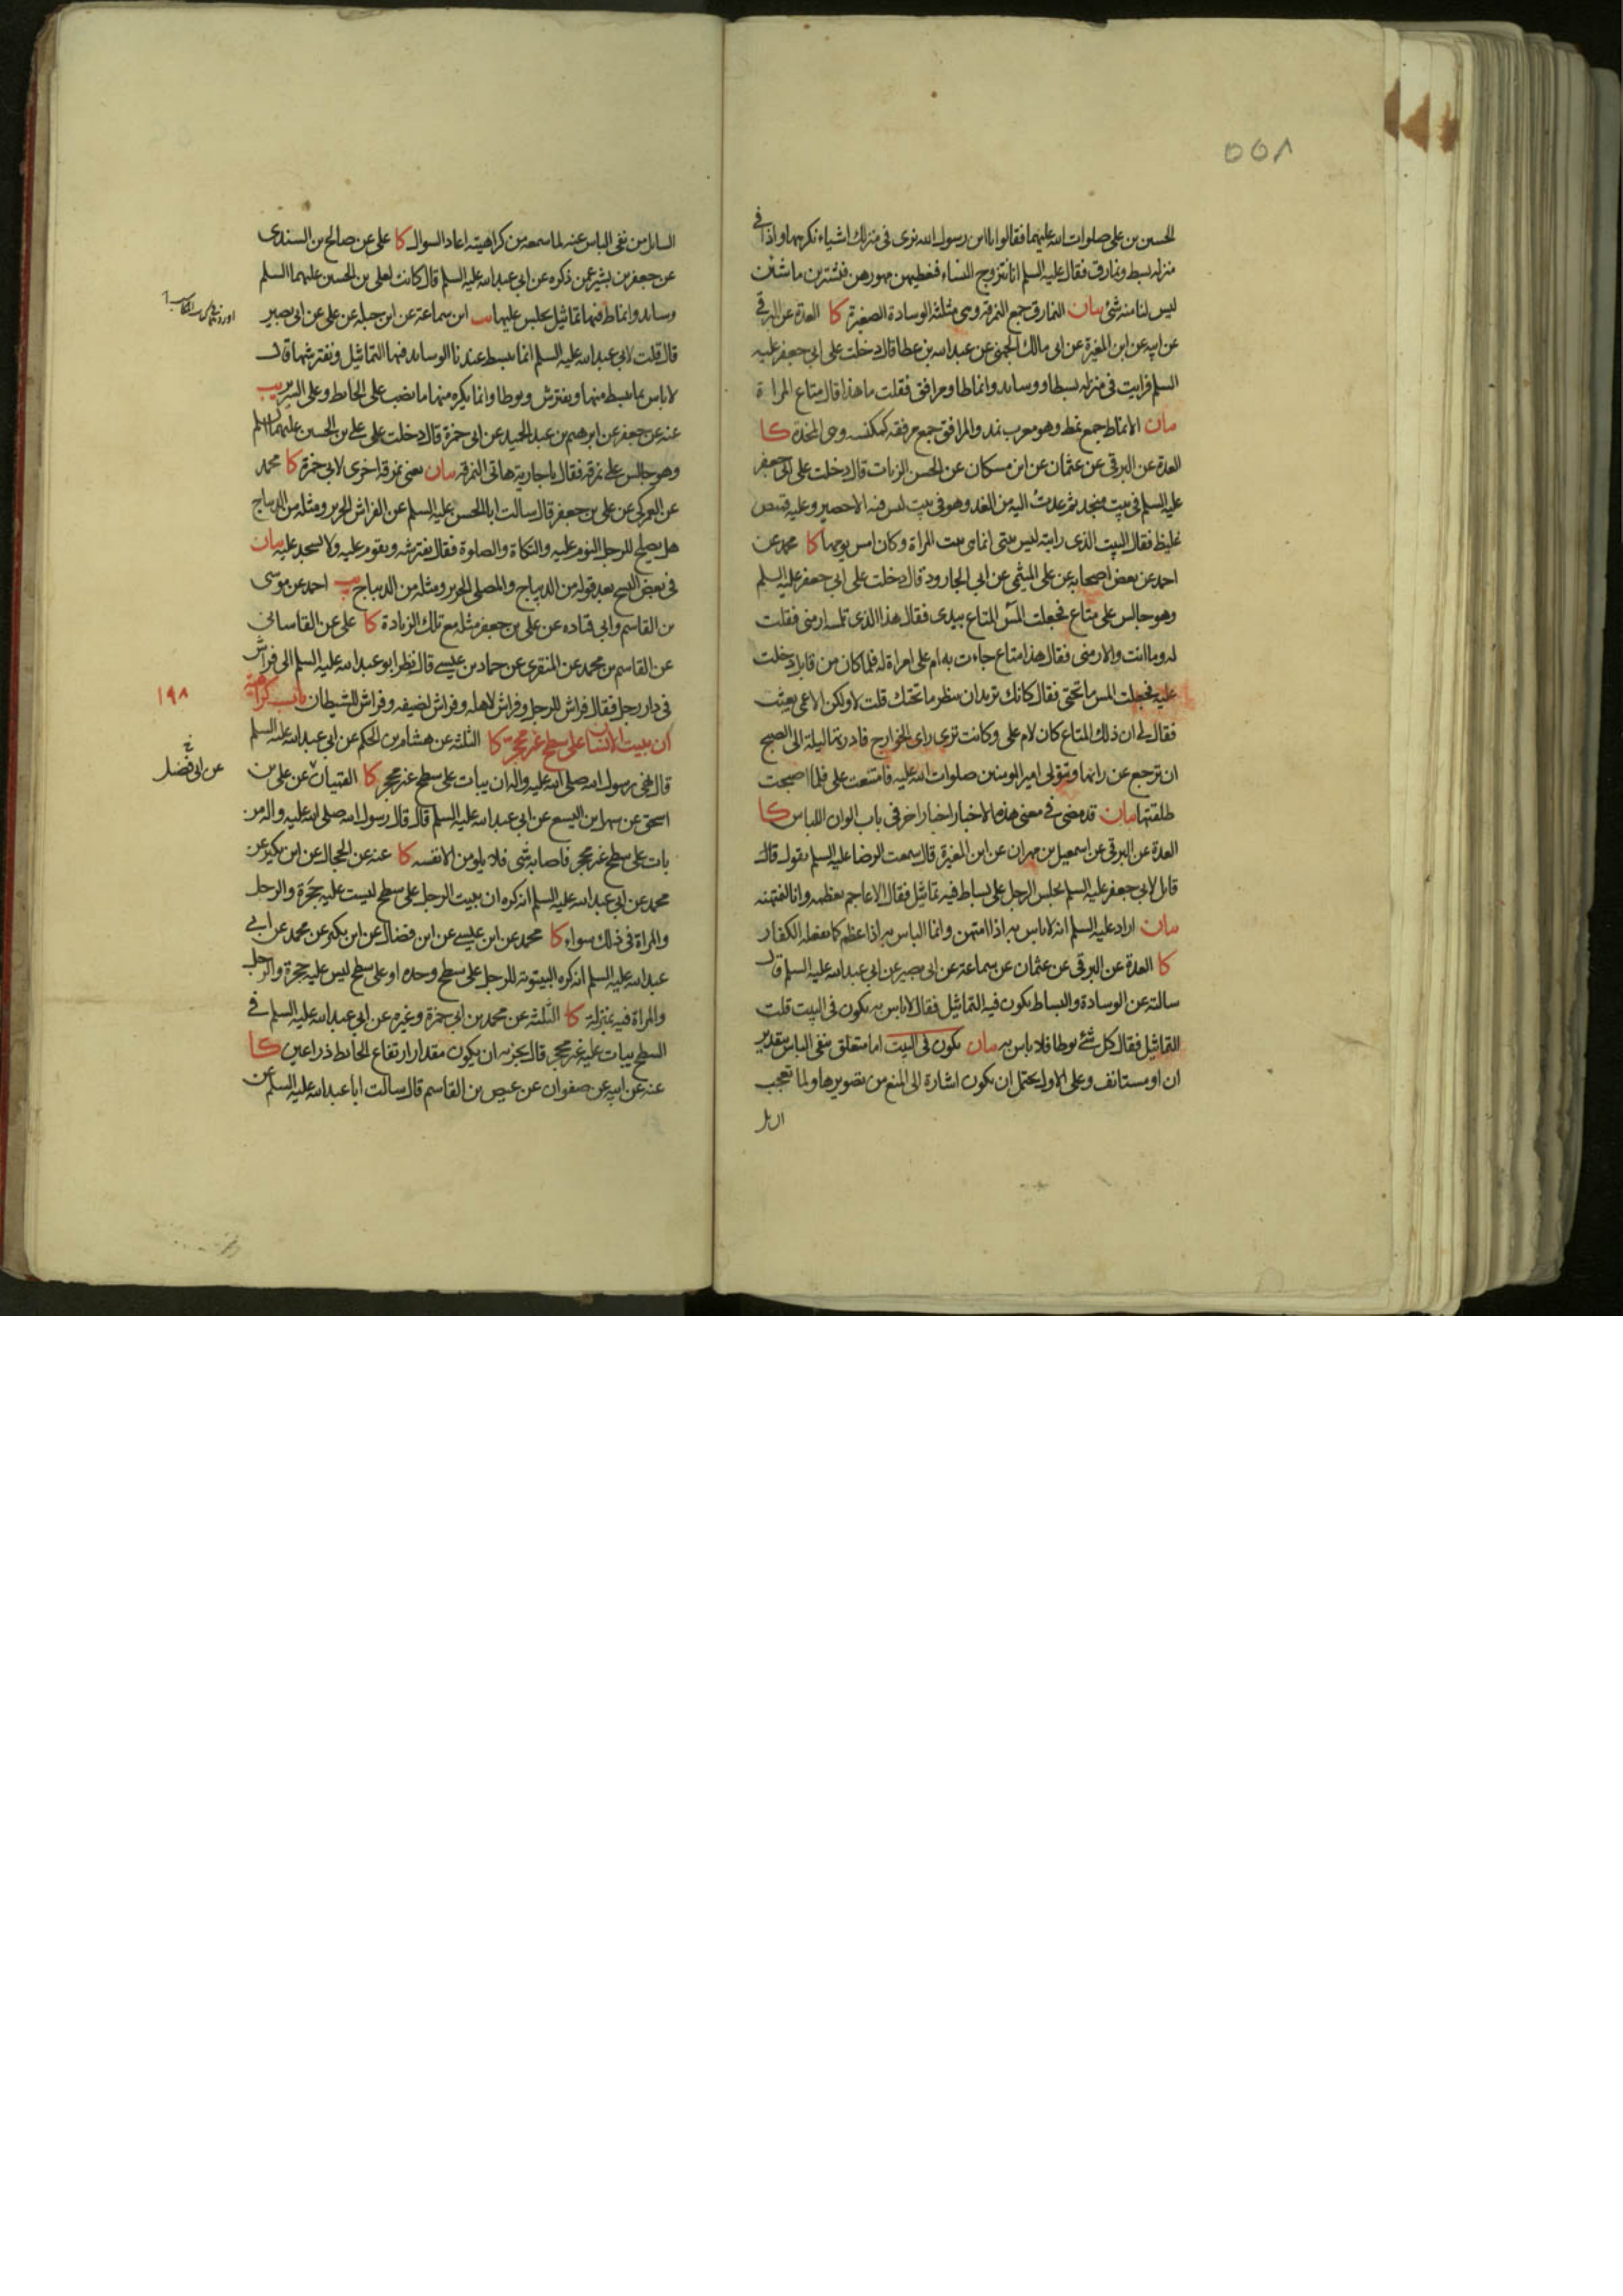 ٥٥٨
الحسين بن علي صلوات الله عليهما فقالوا يا ابن رسول الله نرى في منزلك اشياء نكرهها واذا في
منزله بسط ونمارق فقال عليه السلم انا نتزوج النساء فنعطيهن مهورهن فتشترين ما شئن
ليس لنا منه شئ بيان النمارق جمع النمرقة وهي مثلثة الوسادة الصغيرة كا العدة عن البرقي
عن ابيه عن ابن المغيرة عن ابي مالك الجهني عن عبد الله بن عطا قال دخلت على ابي جعفر عليه
السلم فرايت في منزله بسطا ووسايد وانماطا ومرافق فقلت ما هذا قال متاع المراة
بيان الانماط جمع نمط وهو معرب نمد والمرافق جمع مرفقه كمكنسه وهي المخدة كا
العدة عن البرقي عن عثمان عن ابن مسكان عن الحسن الزيات قال دخلت على ابي جعفر
عليه السلم في بيت منجد ثم عدت اليه من الغد وهو في بيت ليس فيه الا حصير وعليه قميص
غليظ فقال البيت الذي رايته ليس بيتي انما هي بيت المراة وكان امس يومها كا محمد عن
احمد عن بعض اصحابه عن علي الميثمي عن ابي الجارود قال دخلت على ابي جعفر عليه السلم
وهو جالس على متاع فجعلت المس المتاع بيدي فقال هذا الذي تلمسه ارمني فقلت
له وما انت والارمني فقال هذا متاع جاءت به ام علي امراة له فلما كان من قابل دخلت
عليه فجعلت المس ما تحتي فقال كانك تريد ان تنظر ما تحتك قلت لا ولكن الاعمى يعبث
فقال لي ان ذلك المتاع كان لام علي وكانت ترى راى الخوارج فادرتها ليلة الى الصبح
ان ترجع عن رايها وتتولى امير المومنين صلوات الله عليه فامتنعت علي فلما اصبحت
طلقتها بيان قد مضى في معنى هذه الاخبار اخبار اخر في باب الوان اللباس كا
العدة عن البرقي عن اسمعيل بن مهران عن ابن المغيرة قال سمعت الرضا عليه السلم يقول قال
قايل لابي جعفر عليه السلم يجلس الرجل على بساط فيه تماثيل فقال الاعاجم تعظمه وانا لنمتهنه
بيان اراد عليه السلم انه لا باس به اذا امتهن وانما الباس به اذا عظم كما يفعله الكفار
كا العدة عن البرقي عن عثمان عن سماعة عن ابي بصير عن ابي عبد الله عليه السلم قال
سالته عن الوسادة والبساط يكون فيه التماثيل فقال لا باس به يكون في البيت قلت
التماثيل فقال كل شئ يوطا فلا باس به بيان يكون في البيت اما متعلق بنفي الباس بتقدير
ان او مستانف وعلى الاول يحتمل ان يكون اشارة الى المنع من تصويرها ولما تعجب
السايل من نفي الباس عنه لما سمعه من كراهيته اعاد السوال كا علي عن صالح بن السندي
عن جعفر بن بشير عمن ذكره عن ابي عبد الله عليه السلم قال كانت لعلي بن الحسين عليهما السلم
وسايد وانماط فيها تماثيل يجلس عليها يب ابن سماعة عن ابن جبلة عن علي عن ابي بصير
قال قلت لابي عبد الله عليه السلم انما يبسط عندنا الوسايد فيها التماثيل ونفترشها قال
لا باس بما يبسط منها ويفترش ويوطا وانما يكره منها ما نصب على الحايط وعلى السرير يب
عنه عن جعفر عن ابرهيم بن عبد الحميد عن ابي حمزة قال دخلت على علي بن الحسين عليهما السلم
وهو جالس على نمرقة فقال يا جارية هاتي النمرقة بيان يعني نمرقة اخرى لابي حمزة كا محمد
عن العمركي عن علي بن جعفر قال سالت ابا الحسن عليه السلم عن الفراش الحرير ومثله من الديباج
هل يصلح للرجل النوم عليه والتكاة والصلوة فقال يفترشه ويقوم عليه ولا يسجد عليه بيان
في بعض النسخ بعد قوله من الديباج والمصلى الحرير ومثله من الديباج يب احمد عن موسى
بن القاسم وابي قتاده عن علي بن جعفر مثله مع تلك الزيادة كا علي عن القاساني
عن القاسم بن محمد عن المنقري عن حماد بن عيسى قال نظر ابو عبد الله عليه السلم الى فراش
في دار رجل فقال فراش للرجل وفراش لاهله وفراش لضيفه وفراش للشيطان باب كراهية
ان يبيت الانسان على سطح غير محجرة كا الثلثة عن هشام بن الحكم عن ابي عبد الله عليه السلم
قال نهى رسول الله صلى الله عليه واله ان يبات على سطح غير محجر كا القميان عن علي بن
اسحق عن سهل بن اليسع عن ابي عبد الله عليه السلم قال قال رسول الله صلى الله عليه واله من
بات على سطح غير محجر فاصابه شئ فلا يلومن الا نفسه كا عنه عن الحجال عن ابن بكير عن
محمد عن ابي عبد الله عليه السلم انه كره ان يبيت الرجل على سطح ليست عليه حجرة والرجل
والمراة في ذلك سواء كا محمد عن ابن عيسى عن ابن فضال عن ابن بكير عن محمد عن ابي
عبد الله عليه السلم انه كره البيتوتة للرجل على سطح وحده او على سطح ليس عليه حجرة والرجل
والمراة فيه بمنزلة كا الثلثة عن محمد بن ابي حمزة وغيره عن ابي عبد الله عليه السلم في
السطح يبات عليه غير محجر قال يجزيه ان يكون مقدار ارتفاع الحايط ذراعين كا
عنه عن ابيه عن صفوان عن عيص بن القاسم قال سالت ابا عبد الله عليه السلم عن
١٩٨